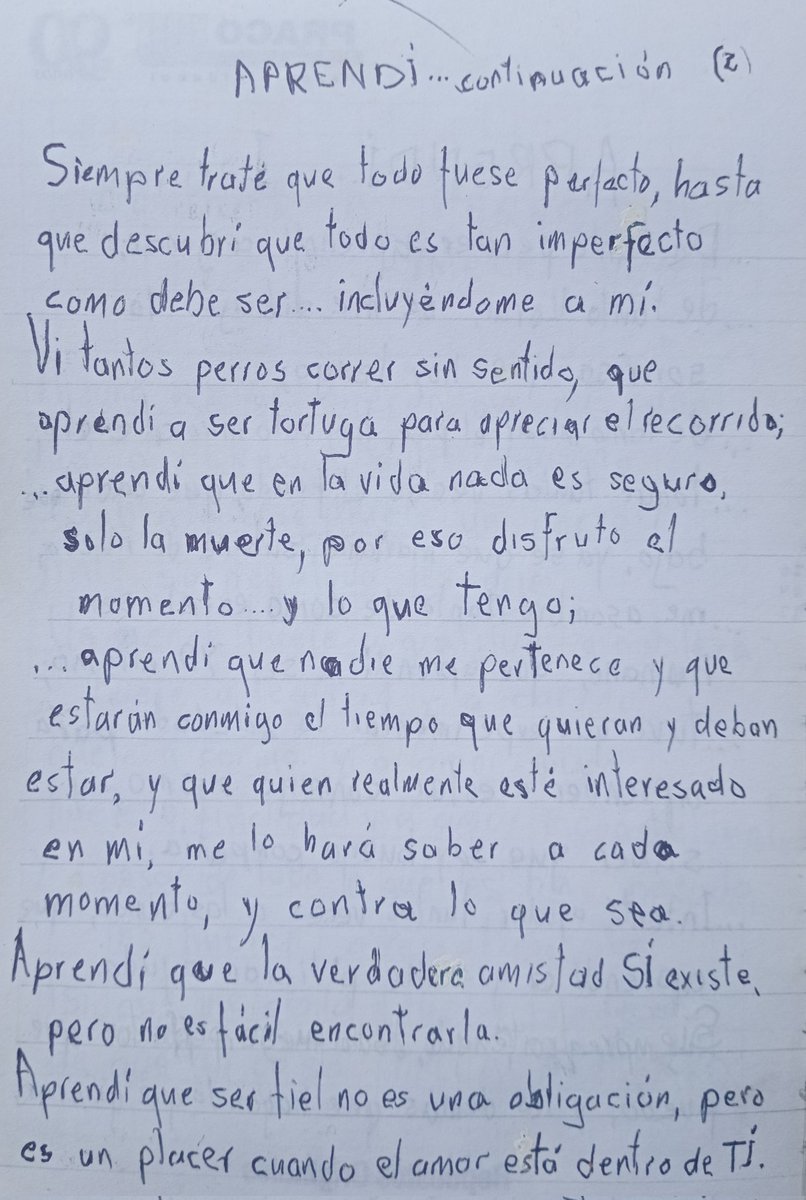 APRENDÍ... continuación (2)
Siempre traté que todo fuese perfecto, hasta
que descubrí que todo es tan imperfecto
como debe ser.... incluyéndome a mí.
Vi tantos perros correr sin sentido, que
aprendí a ser tortuga para apreciar el recorrido;
...aprendí que en la vida nada es seguro,
solo la muerte, por eso disfruto el
momento....y lo que tengo;
...aprendí que nadie me pertenece y que
estarán conmigo el tiempo que quieran y deban
estar, y que quien realmente esté interesado
en mí, me lo hará saber a cada
momento, y contra lo que sea.
Aprendí que la verdadera amistad SÍ existe,
pero no es fácil encontrarla.
Aprendí que ser fiel no es una obligación, pero
es un placer cuando el amor está dentro de TÍ.